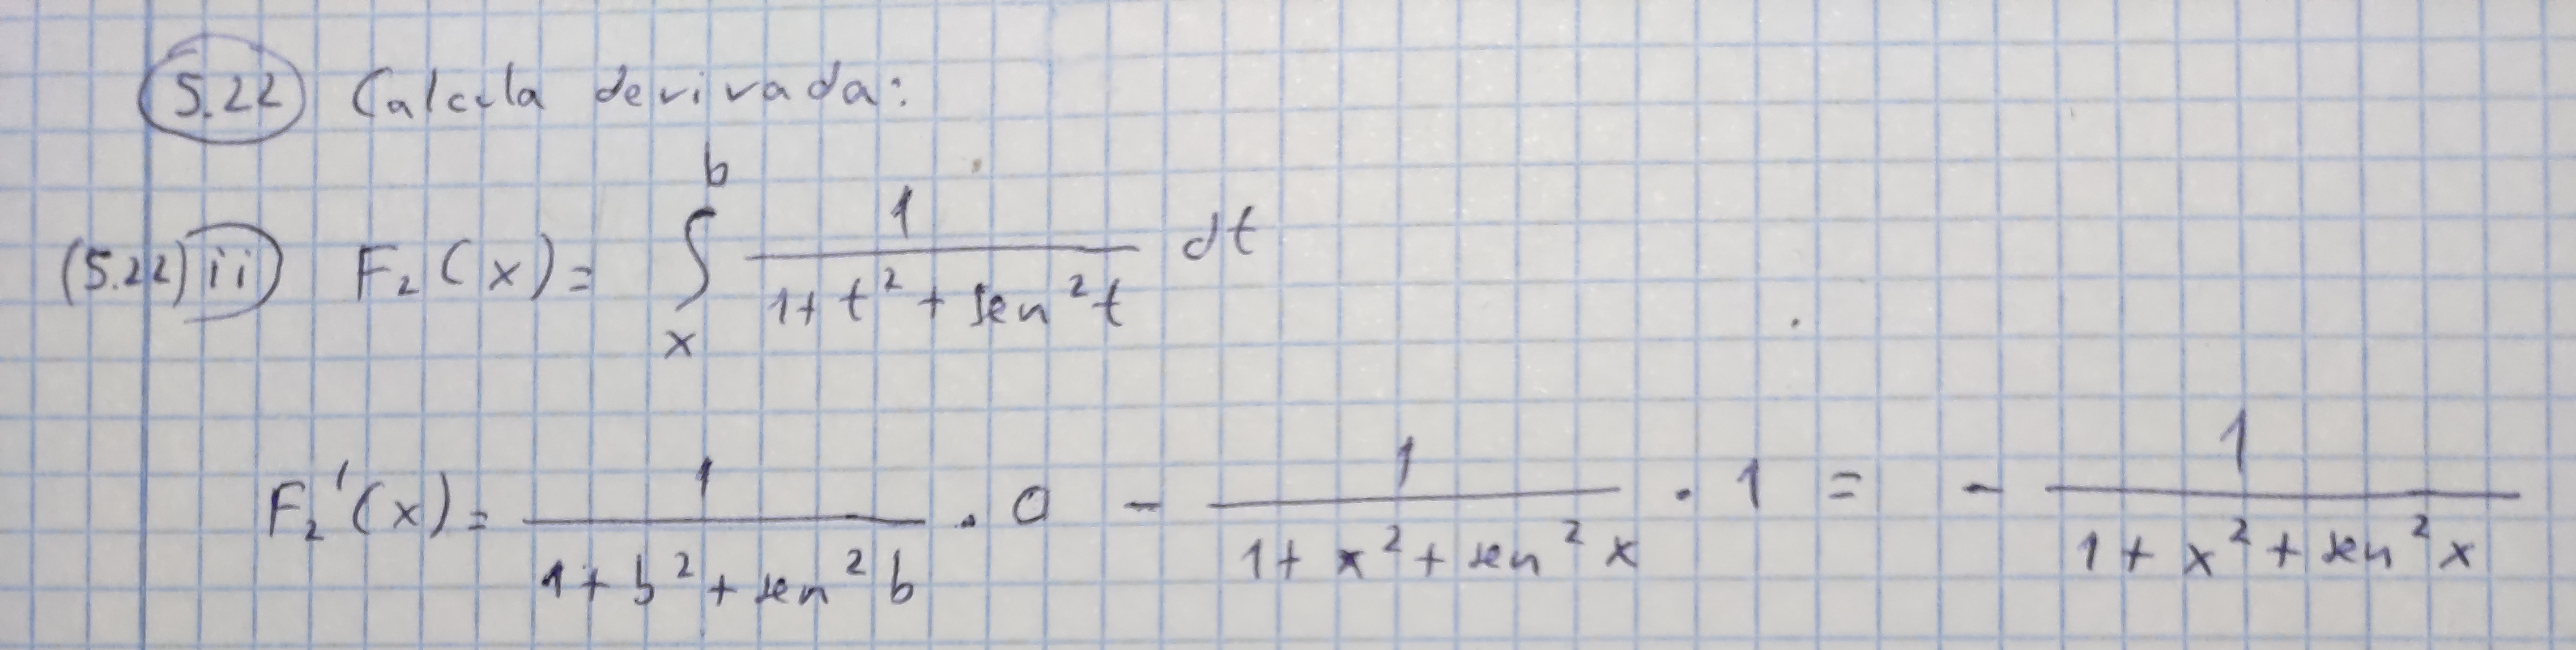 5.22 Calcula derivada:
(5.22) ii) F₂(x) = ∫ₓᵇ 1/(1 + t² + sen² t) dt
F₂'(x) = 1/(1 + b² + sen² b) · 0 - 1/(1 + x² + sen² x) · 1 = - 1/(1 + x² + sen² x)